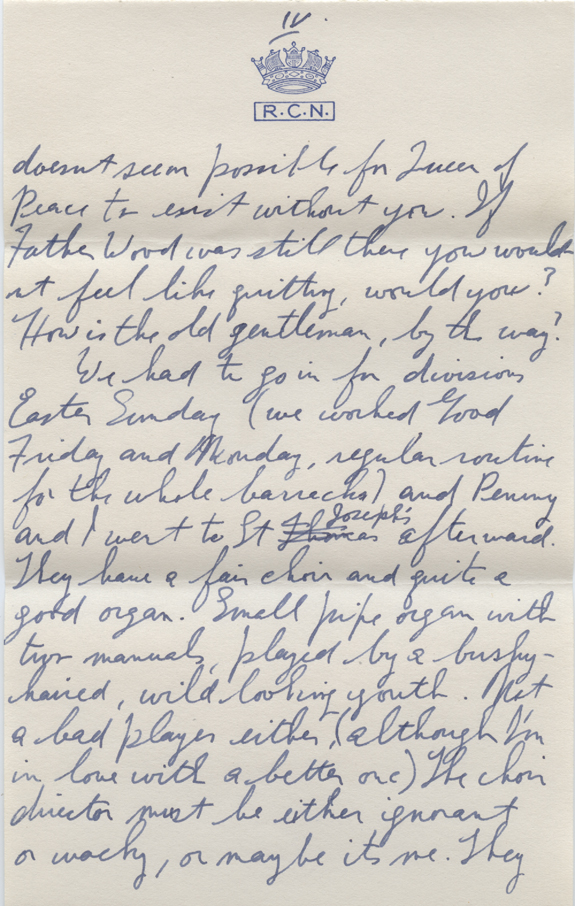 IV.
R.C.N.
doesnt seem possible for Queen of
Peace to exist without you. If
Father Wood was still there you would
nt feel like quitting, would you?
How is the old gentleman, by the way?
We had to go in for divisions
Easter Sunday (we worked Good
Friday and Monday, regular routine
for the whole barracks) and Penny
and I went to St Thomas Joseph's afterward.
They have a fair choir and quite a
good organ. Small pipe organ with
two manuals, played by a bushy-
haired, wild looking youth. Not
a bad player either, (although I'm
in love with a better one) The choir
director must be either ignorant
or wacky, or maybe its me. They